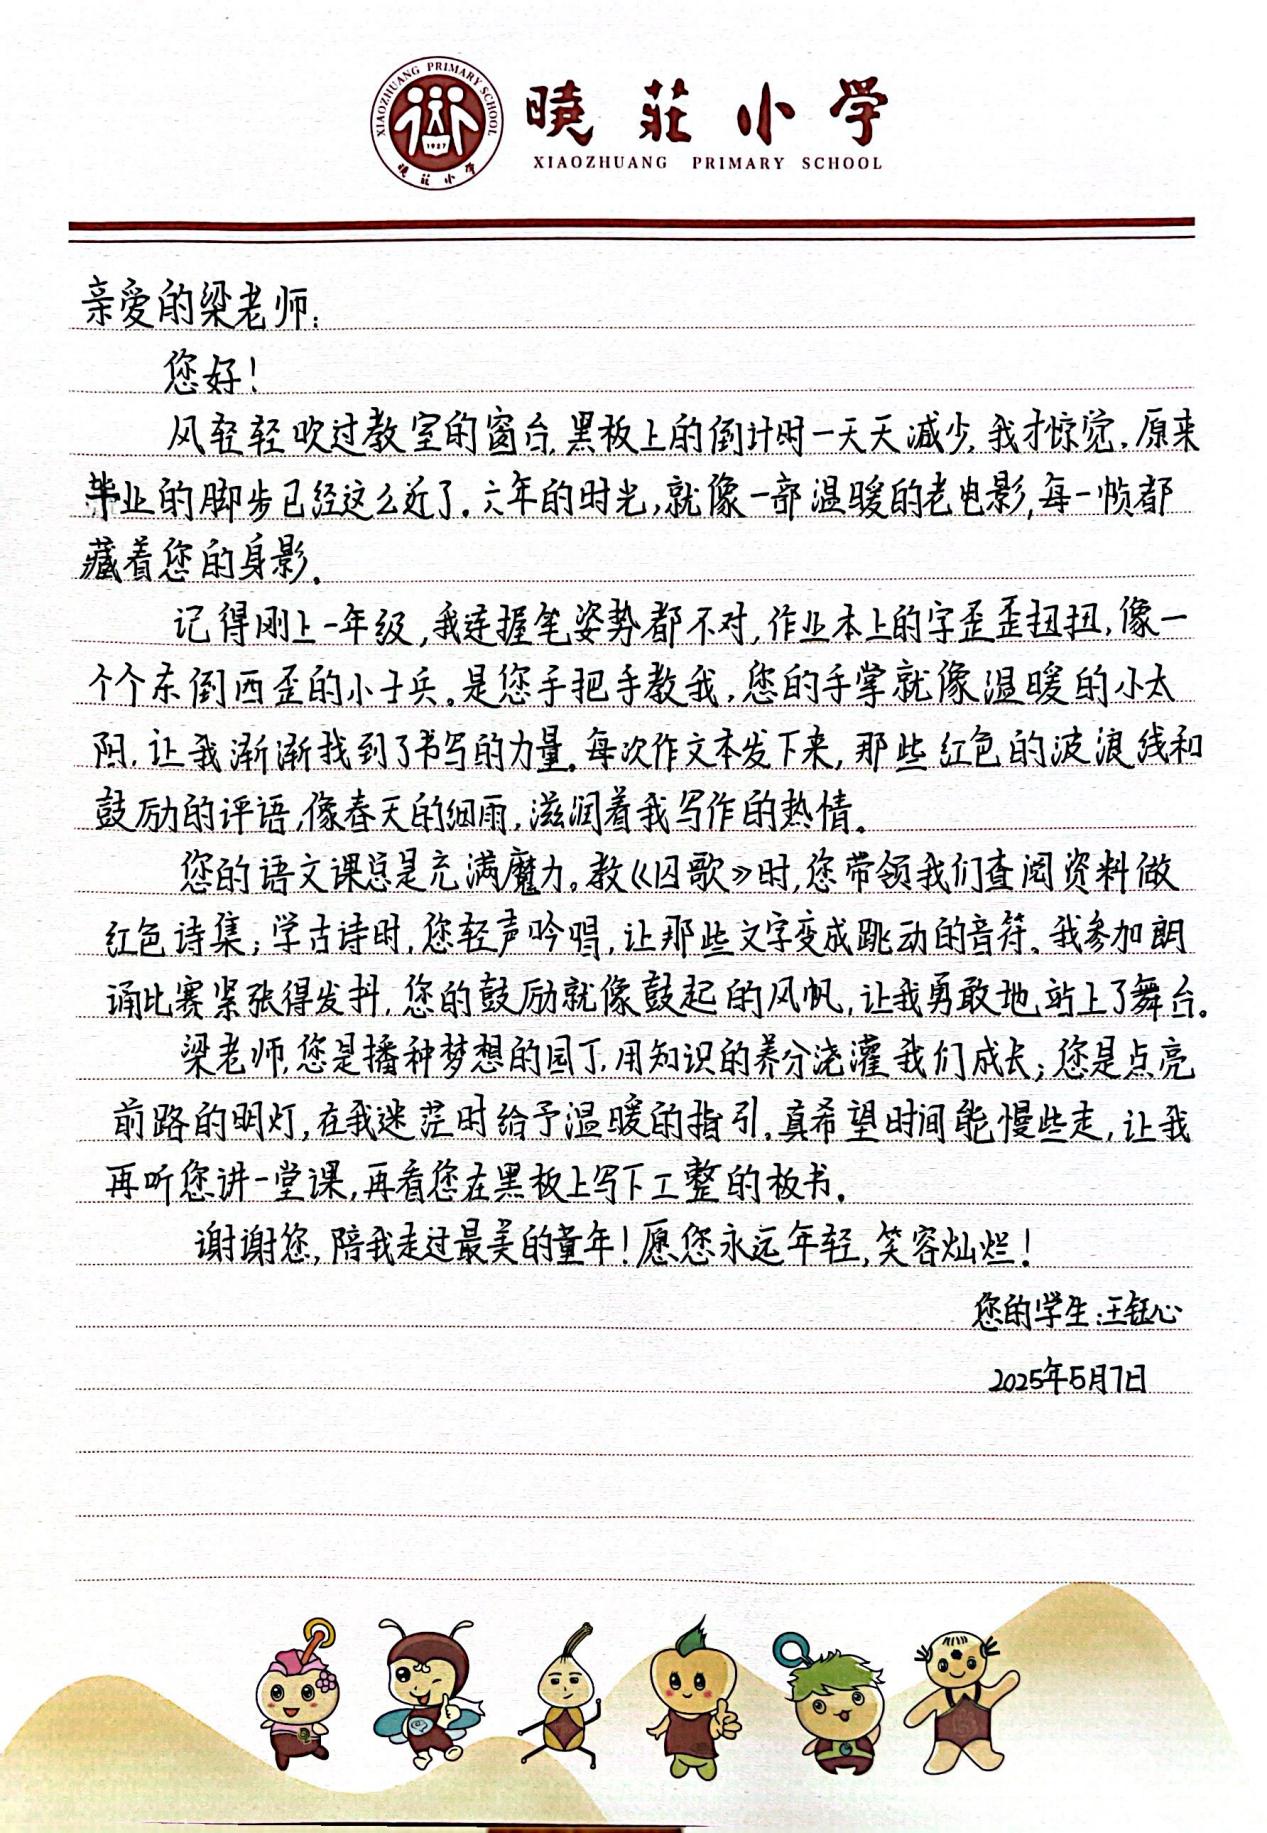 XIAOZHUANG PRIMARY SCHOOL
1927
曉莊小学
曉莊小学
XIAOZHUANG PRIMARY SCHOOL
亲爱的梁老师：
您好！
风轻轻吹过教室的窗台，黑板上的倒计时一天天减少，我才惊觉，原来
毕业的脚步已经这么近了。六年的时光，就像一部温暖的老电影，每一帧都
藏着您的身影。
记得刚上一年级，我连握笔姿势都不对，作业本上的字歪歪扭扭，像一
个个东倒西歪的小士兵。是您手把手教我，您的手掌就像温暖的小太
阳，让我渐渐找到了书写的力量。每次作文本发下来，那些红色的波浪线和
鼓励的评语，像春天的细雨，滋润着我写作的热情。
您的语文课总是充满魔力。教《囚歌》时，您带领我们查阅资料做
红色诗集；学古诗时，您轻声吟唱，让那些文字变成跳动的音符。我参加朗
诵比赛紧张得发抖，您的鼓励就像鼓起的风帆，让我勇敢地站上了舞台。
梁老师，您是播种梦想的园丁，用知识的养分浇灌我们成长；您是点亮
前路的明灯，在我迷茫时给予温暖的指引。真希望时间能慢些走，让我
再听您讲一堂课，再看您在黑板上写下工整的板书。
谢谢您，陪我走过最美的童年！愿您永远年轻，笑容灿烂！
您的学生：王钰心
2025年5月7日